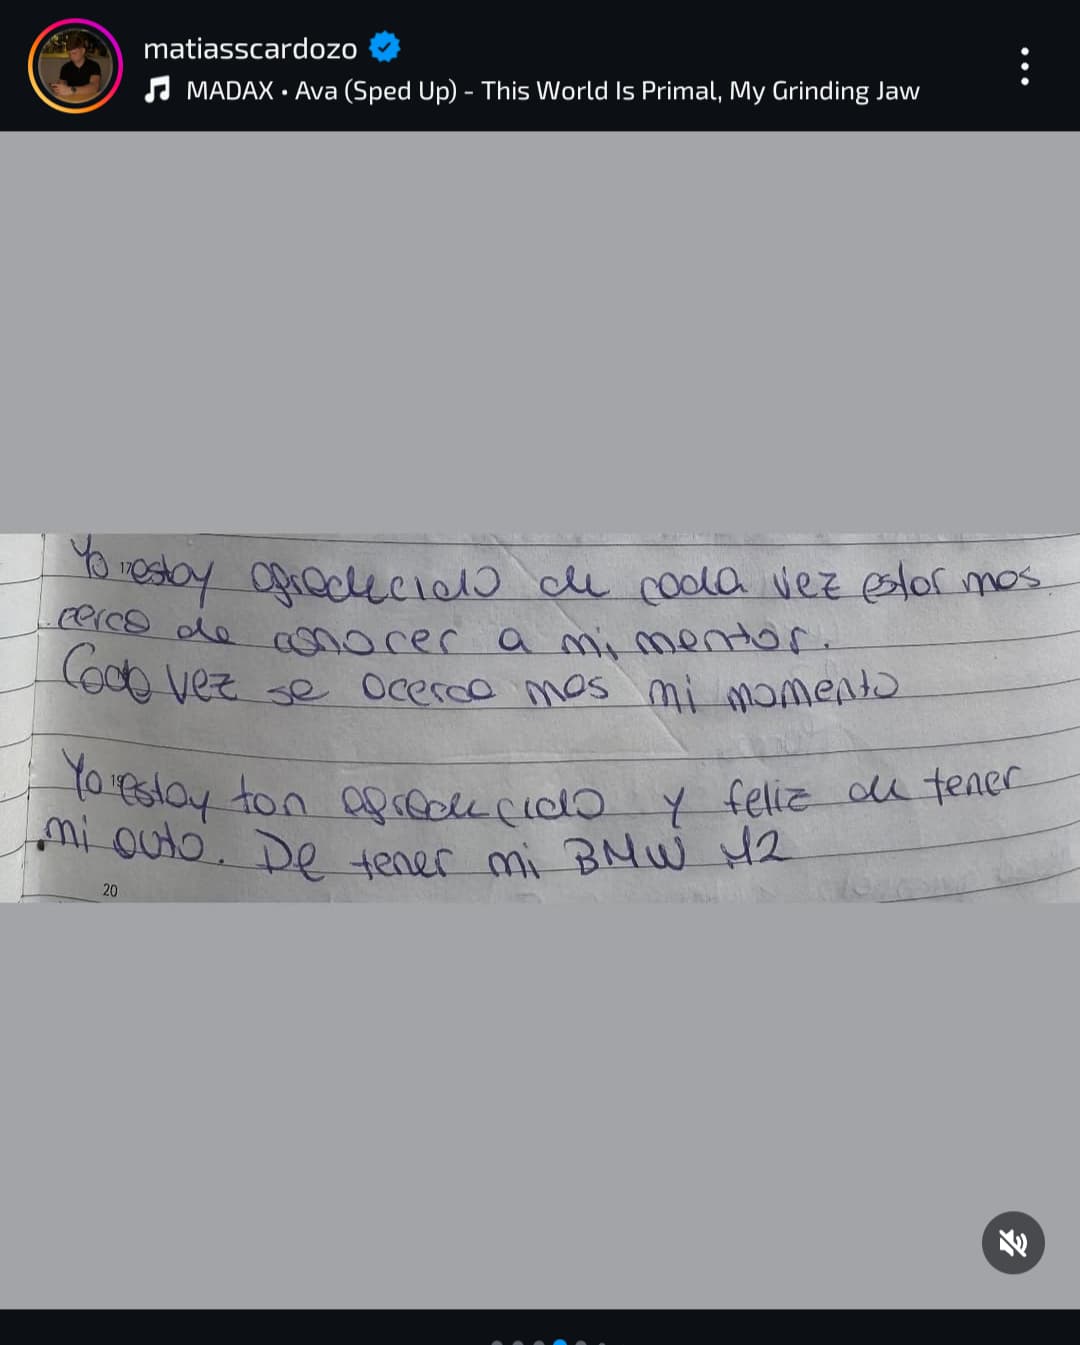 matiasscardozo
MADAX • Ava (Sped Up) - This World Is Primal, My Grinding Jaw
Yo estoy agradecido de cada vez estar mas
cerca de conocer a mi mentor.
Cada vez se acerca mas mi momento
Yo estoy tan agradecido y feliz de tener
mi auto. De tener mi BMW M2
20